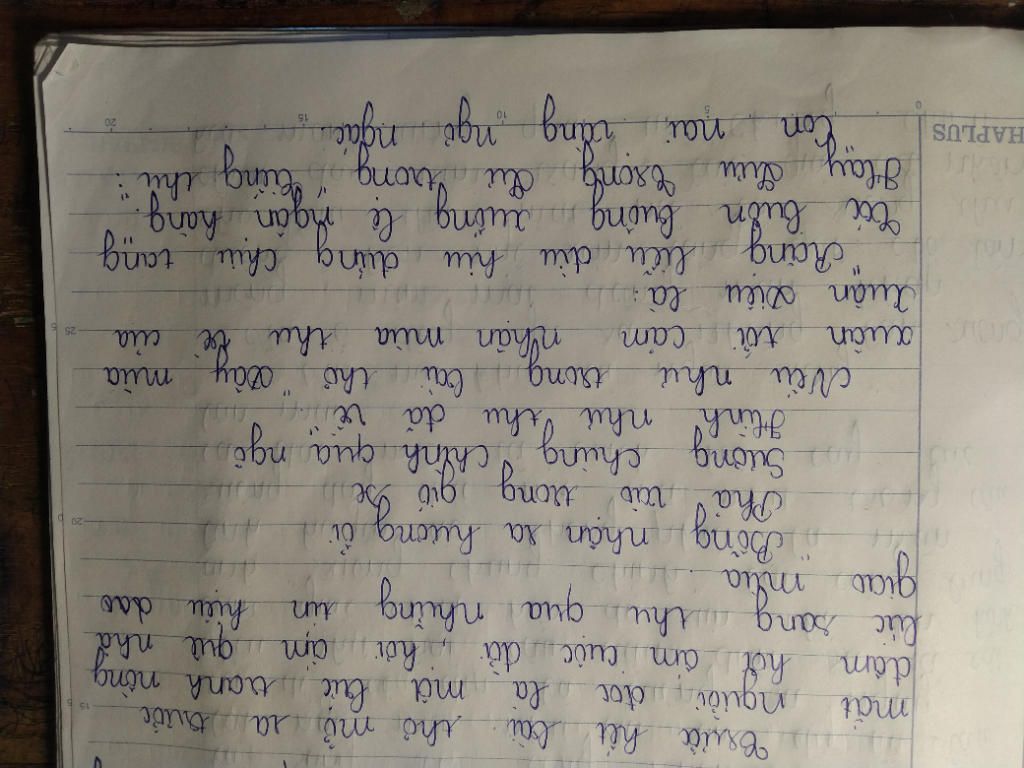 Trước hết bài thơ mở ra trước
mắt người đọc là một bức tranh nồng
đậm hơi ấm cuộc đời, hơi ấm quê nhà
lúc sang thu qua những tín hiệu dao
giao mùa.
"Bỗng nhận ra hương ổi
Phả vào trong gió se
Sương chùng chình qua ngõ
Hình như thu đã về"
Nếu như trong bài thơ "Đây mùa
xuân tới cảm nhận mùa thu về của
Xuân Diệu là:
"Rặng liễu đìu hiu đứng chịu tang
Tóc buồn buông xuống lệ ngàn hàng"
Hay Lưu Trọng Lư trong "tiếng thu":
"Con nai vàng ngơ ngác
HAPLUS
0 5 10 15 20
15
20
25